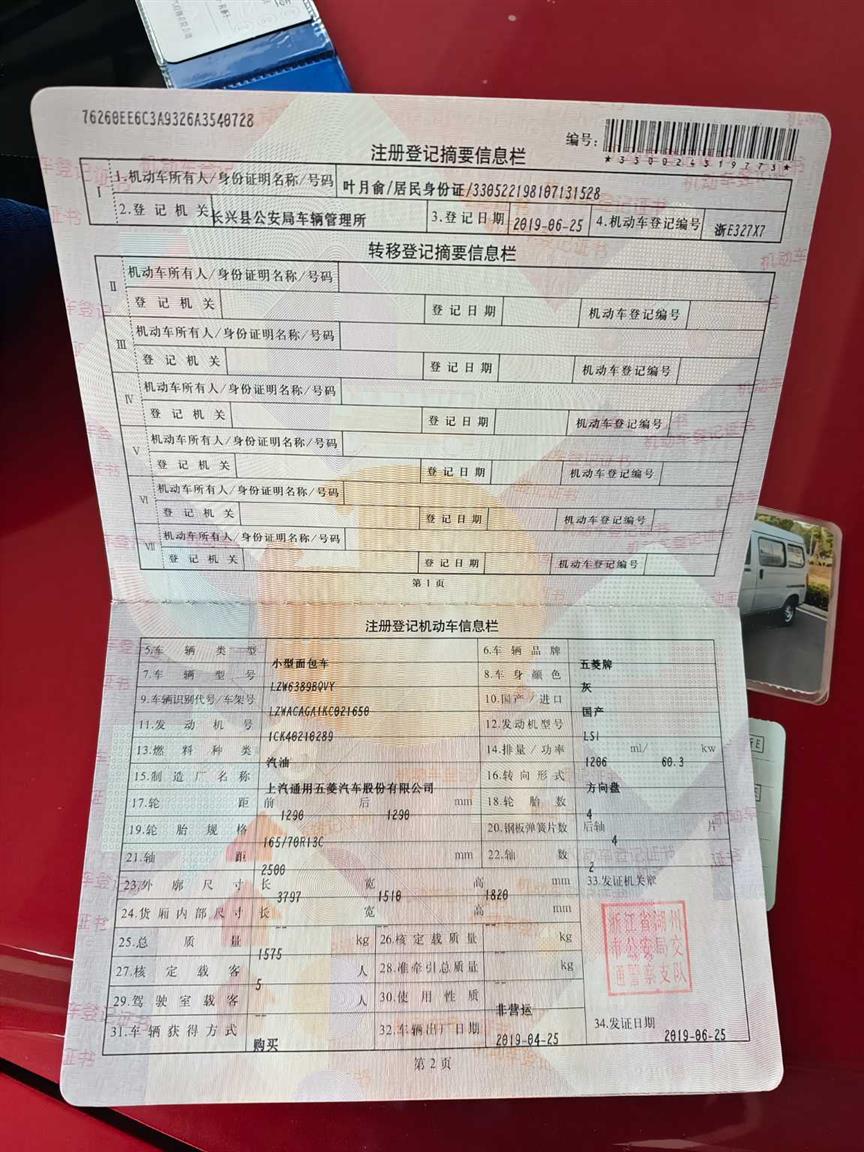 76260EE6C3A9326A3540728
编号:
*330024319773*
注册登记摘要信息栏
I 1.机动车所有人/身份证明名称/号码 叶月俞/居民身份证/330522198107131528
2.登记机关 长兴县公安局车辆管理所 3.登记日期 2019-06-25 4.机动车登记编号 浙E327X7
转移登记摘要信息栏
II 机动车所有人/身份证明名称/号码
登记机关 登记日期 机动车登记编号
III 机动车所有人/身份证明名称/号码
登记机关 登记日期 机动车登记编号
IV 机动车所有人/身份证明名称/号码
登记机关 登记日期 机动车登记编号
V 机动车所有人/身份证明名称/号码
登记机关 登记日期 机动车登记编号
VI 机动车所有人/身份证明名称/号码
登记机关 登记日期 机动车登记编号
VII 机动车所有人/身份证明名称/号码
登记机关 登记日期 机动车登记编号
第1页
注册登记机动车信息栏
5.车辆类型 小型面包车 6.车辆品牌 五菱牌
7.车辆型号 LZW6389BQVY 8.车身颜色 灰
9.车辆识别代号/车架号 LZWACAGA1KC021650 10.国产/进口 国产
11.发动机号 1CK40210289 12.发动机型号 LSI
13.燃料种类 汽油 14.排量/功率 1206 ml/ 60.3 kw
15.制造厂名称 上汽通用五菱汽车股份有限公司 16.转向形式 方向盘
17.轮距 前 1290 后 1290 mm 18.轮胎数 4
19.轮胎规格 165/70R13C 20.钢板弹簧片数 后轴 4 片
21.轴距 2500 mm 22.轴数 2
23.外廓尺寸 长 3797 宽 1510 高 1820 mm 33.发证机关章
24.货厢内部尺寸 长 -- 宽 -- 高 -- mm
浙江省湖州
市公安局交
通警察支队
25.总质量 1575 kg 26.核定载质量 -- kg
27.核定载客 5 人 28.准牵引总质量 -- kg
29.驾驶室载客 -- 人 30.使用性质 非营运
31.车辆获得方式 购买 32.车辆出厂日期 2019-04-25 34.发证日期 2019-06-25
第2页